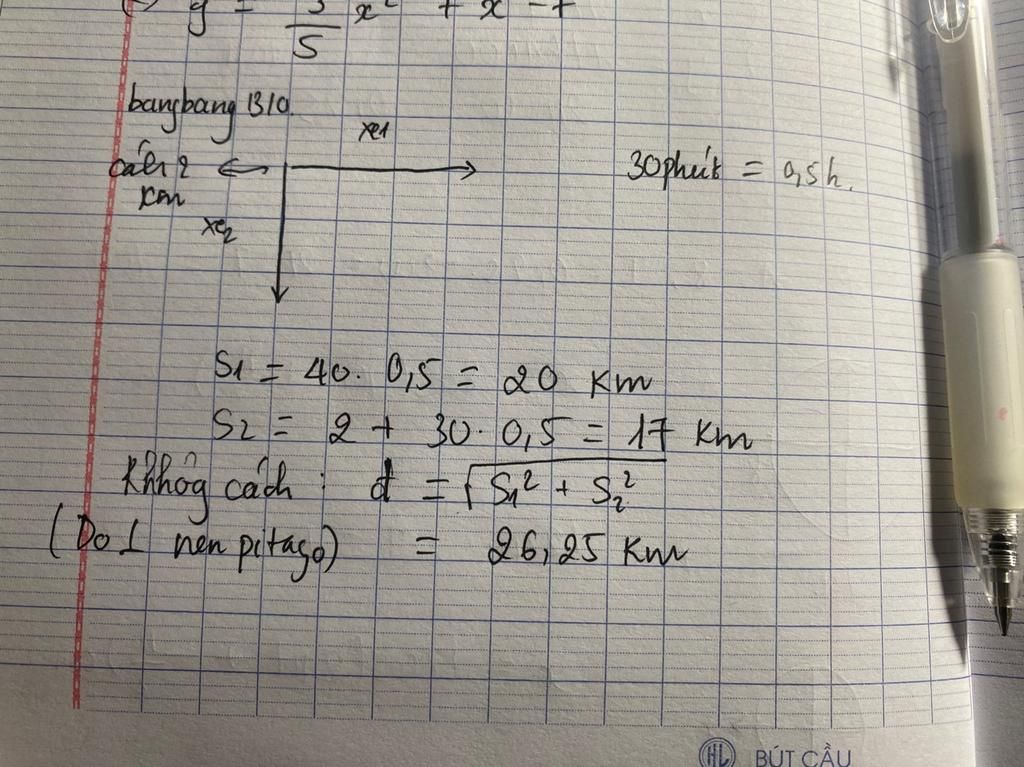 y = 3/5 x² + x - 7
bangbang 1310.
xe1
cách 2
km
30 phút = 0,5h.
xe2
S1 = 40 . 0,5 = 20 km
S2 = 2 + 30 . 0,5 = 17 km
Khhog cách : d = √(S1² + S2²)
(Do ⊥ nen pitago) = 26,25 km
HL BÚT CẦU